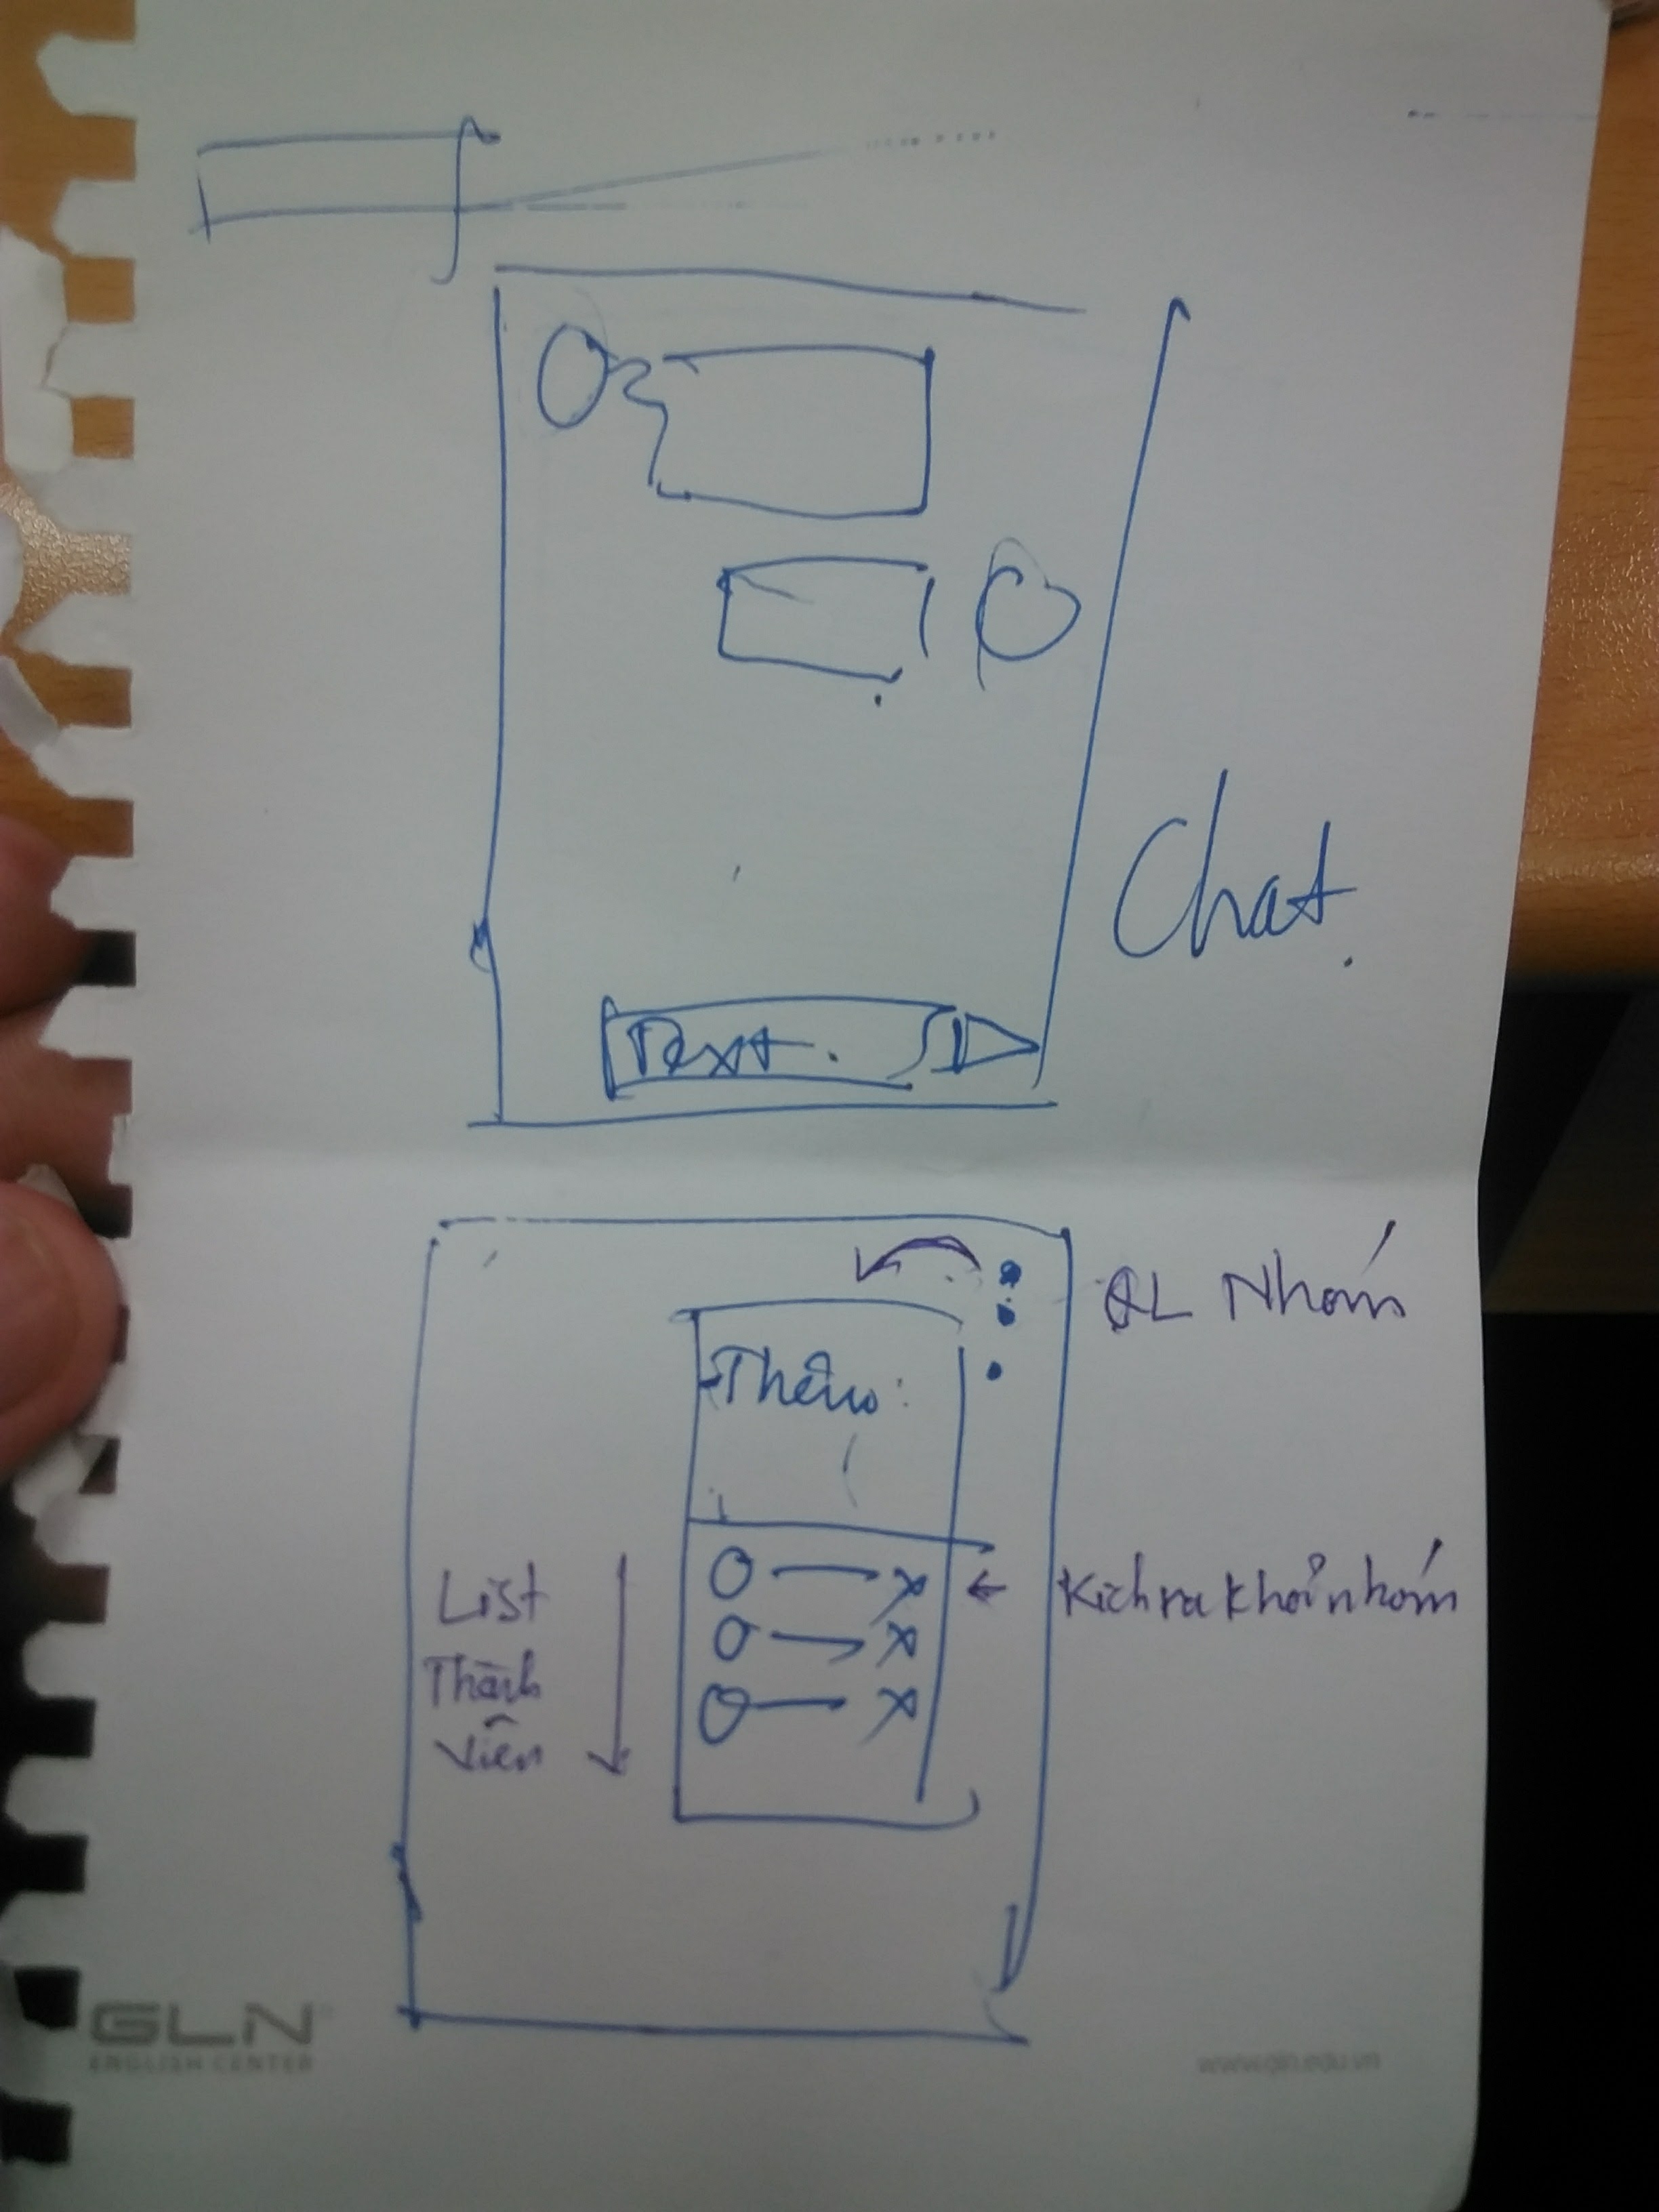 Chat.
Text.
QL Nhóm
Thêm:
List
Thành
Viên
Kích ra khỏi nhóm
GLN
ENGLISH CENTER
www.gln.edu.vn